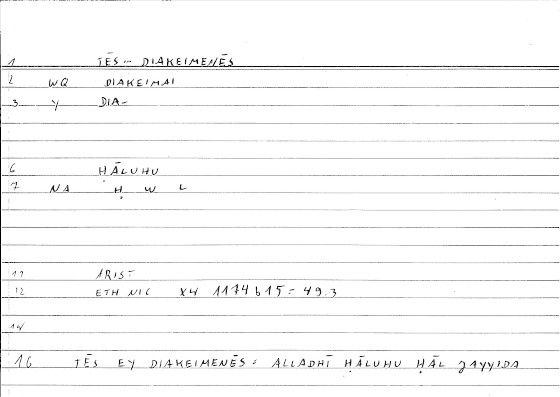 1 TĒS — DIAKEIMENĒS
2 WQ DIAKEIMAI
3 Y DIA-
6 ḤĀLUHU
7 NA Ḥ W L
11 ARIST
12 ETH NIC X4 1174b15 = 49.3
14
16 TĒS EY DIAKEIMENĒS = ALLADHĪ ḤĀLUHU ḤĀL JAYYIDA